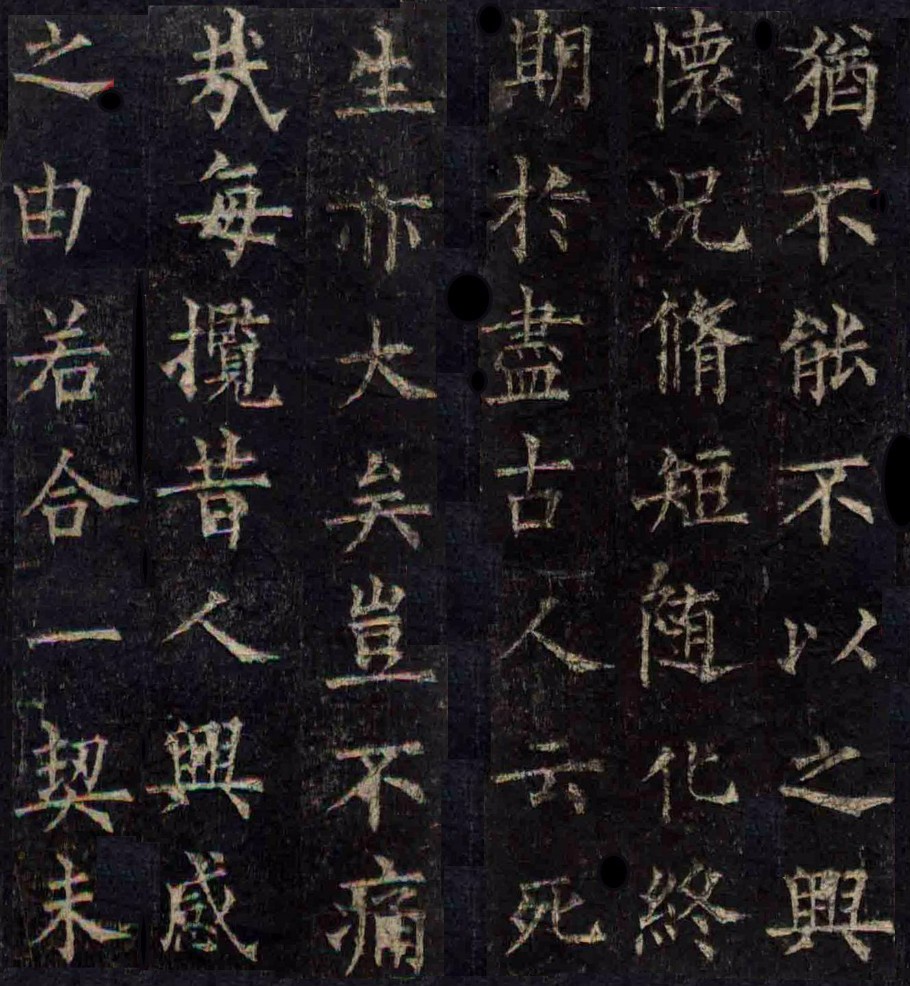 猶不能不以之興
懷况脩短随化終
期於盡古人云死
生亦大矣豈不痛
㢤每攬昔人興感
之由若合一契未